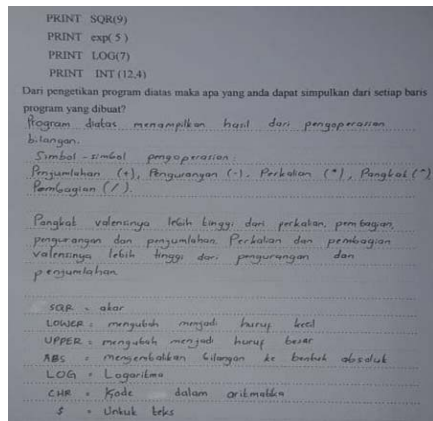 PRINT SQR(9)
PRINT exp( 5 )
PRINT LOG(7)
PRINT INT (12,4)
Dari pengetikan program diatas maka apa yang anda dapat simpulkan dari setiap baris
program yang dibuat?
Program diatas menampilkan hasil dari pengoperasian
bilangan.
Simbol-simbol pengoperasian :
Penjumlahan (+), Pengurangan (-), Perkalian (*), Pangkat (^)
Pembagian (/).
Pangkat valensinya lebih tinggi dari perkalian, pembagian,
pengurangan dan penjumlahan. Perkalian dan pembagian
valensinya lebih tinggi dari pengurangan dan
penjumlahan.
SQR = akar
LOWER = mengubah menjadi huruf kecil
UPPER = mengubah menjadi huruf besar
ABS = mengembalikan bilangan ke bentuk absolut
LOG = Logaritma
CHR = Kode dalam aritmatika
$ = Untuk teks